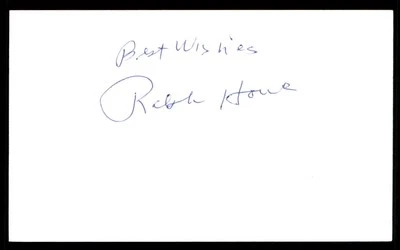 Best Wishes
Ralph Howe